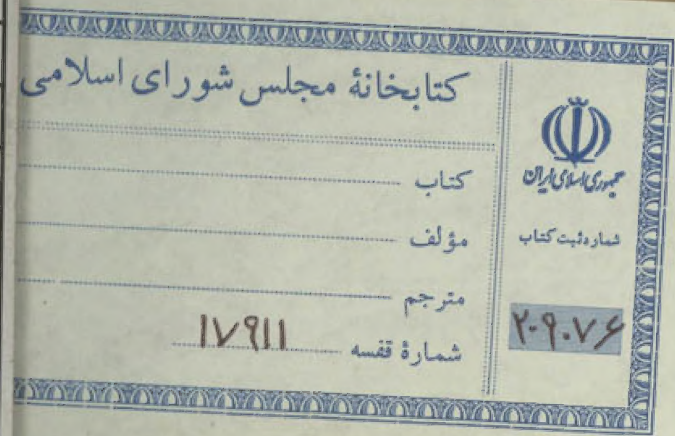 کتابخانهٔ مجلس شورای اسلامی
کتاب
مؤلف
مترجم
شمارهٔ قفسه ۱۷۹۱۱
جمهوری اسلامی ایران
شماره ثبت کتاب
۲۰۹۰۷۶